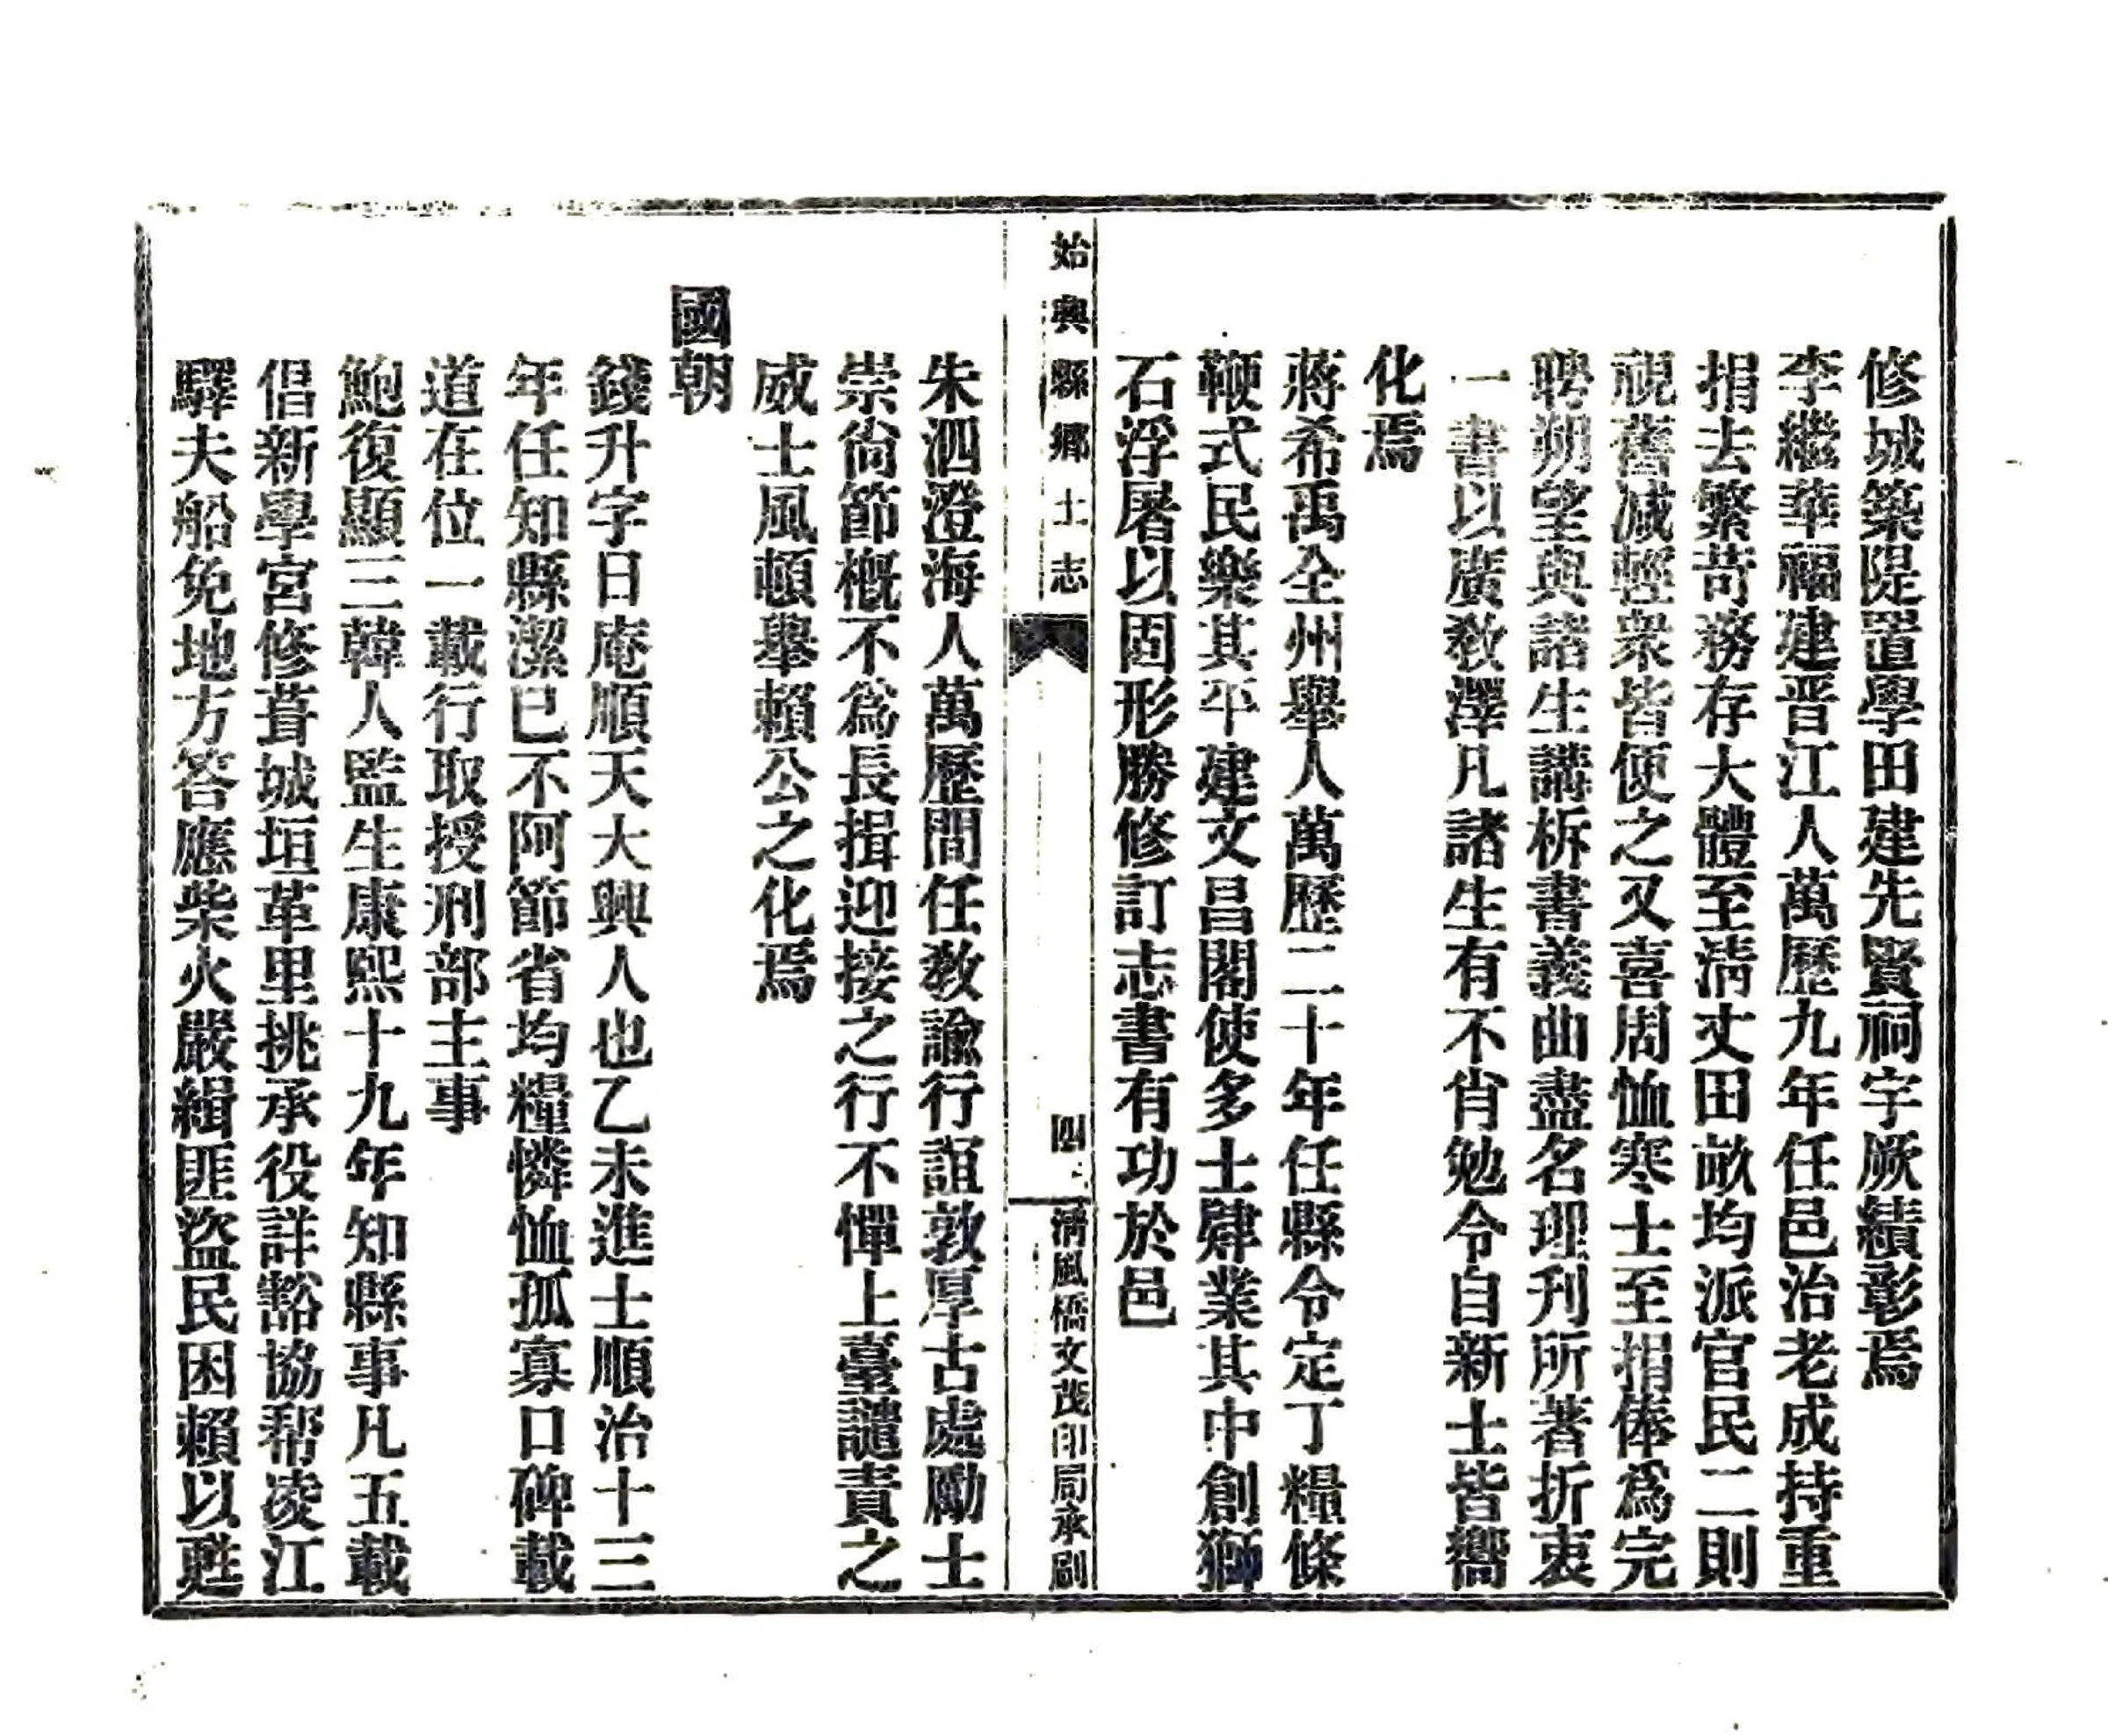 修城築隄置學田建先賢祠宇厥績彰焉
李繼華福建晋江人萬歷九年任邑治老成持重
捐去繁苛務存大體至淸丈田畝均派官民二則
視舊減輕衆皆便之又喜周恤寒士至捐俸爲完
聘朔望與諸生講柝書義曲盡名理刋所著折衷
一書以廣敎澤凡諸生有不肖勉令自新士皆嚮
化焉
蔣希禹全州舉人萬歷二十年任縣令定丁糧條
鞭式民樂其平建文昌閣使多士肄業其中創獅
石浮屠以固形勝修訂志書有功於邑
始興縣鄉土志
四
淸風橋文茂印局承刷
朱泗澄海人萬歷間任敎諭行誼敦厚古處勵士
崇尙節槪不爲長揖迎接之行不憚上臺譴責之
威士風頓舉賴公之化焉
國朝
錢升字日庵順天大興人也乙未進士順治十三
年任知縣潔已不阿節省均糧憐恤孤寡口碑載
道在位一載行取授刑部主事
鮑復顯三韓人監生康熙十九年知縣事凡五載
倡新學宮修葺城垣革里挑承役詳豁協帮凌江
驛夫船免地方答應柴火嚴緝匪盜民困賴以甦